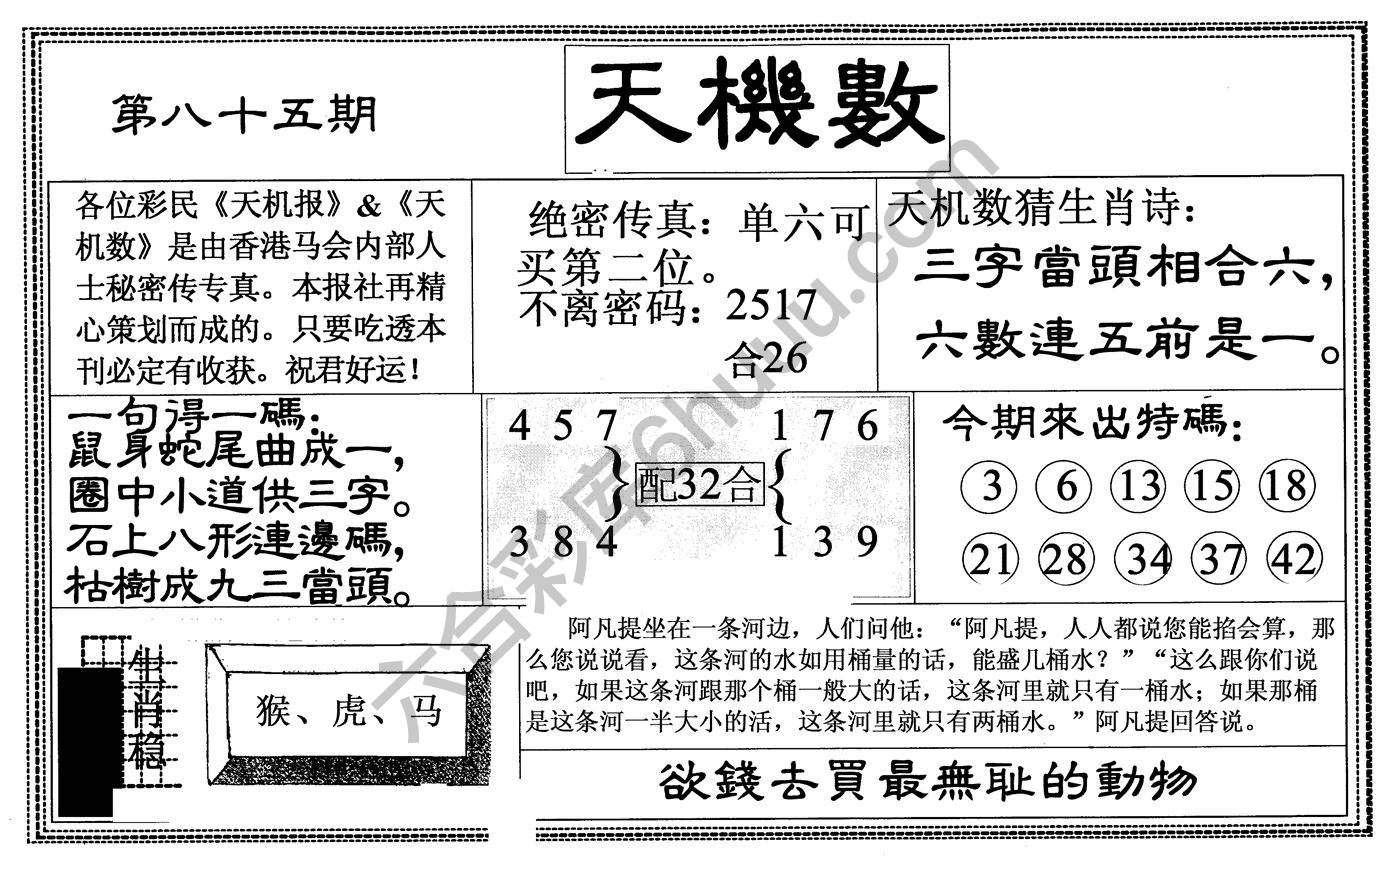 第八十五期
天機數
各位彩民《天机报》&《天
机数》是由香港马会内部人
士秘密传专真。本报社再精
心策划而成的。只要吃透本
刊必定有收获。祝君好运！
绝密传真：单六可
买第二位。
不离密码：2517
合26
天机数猜生肖诗：
三字當頭相合六，
六數連五前是一。
一句得一碼：
鼠身蛇尾曲成一，
圈中小道供三字。
石上八形連邊碼，
枯樹成九三當頭。
4 5 7 1 7 6
配32合
3 8 4 1 3 9
今期來出特碼：
3 6 13 15 18
21 28 34 37 42
生肖稳
猴、虎、马
阿凡提坐在一条河边，人们问他：“阿凡提，人人都说您能掐会算，那
么您说说看，这条河的水如用桶量的话，能盛几桶水？”“这么跟你们说
吧，如果这条河跟那个桶一般大的话，这条河里就只有一桶水；如果那桶
是这条河一半大小的活，这条河里就只有两桶水。”阿凡提回答说。
欲錢去買最無耻的動物
六合彩库6huku.com